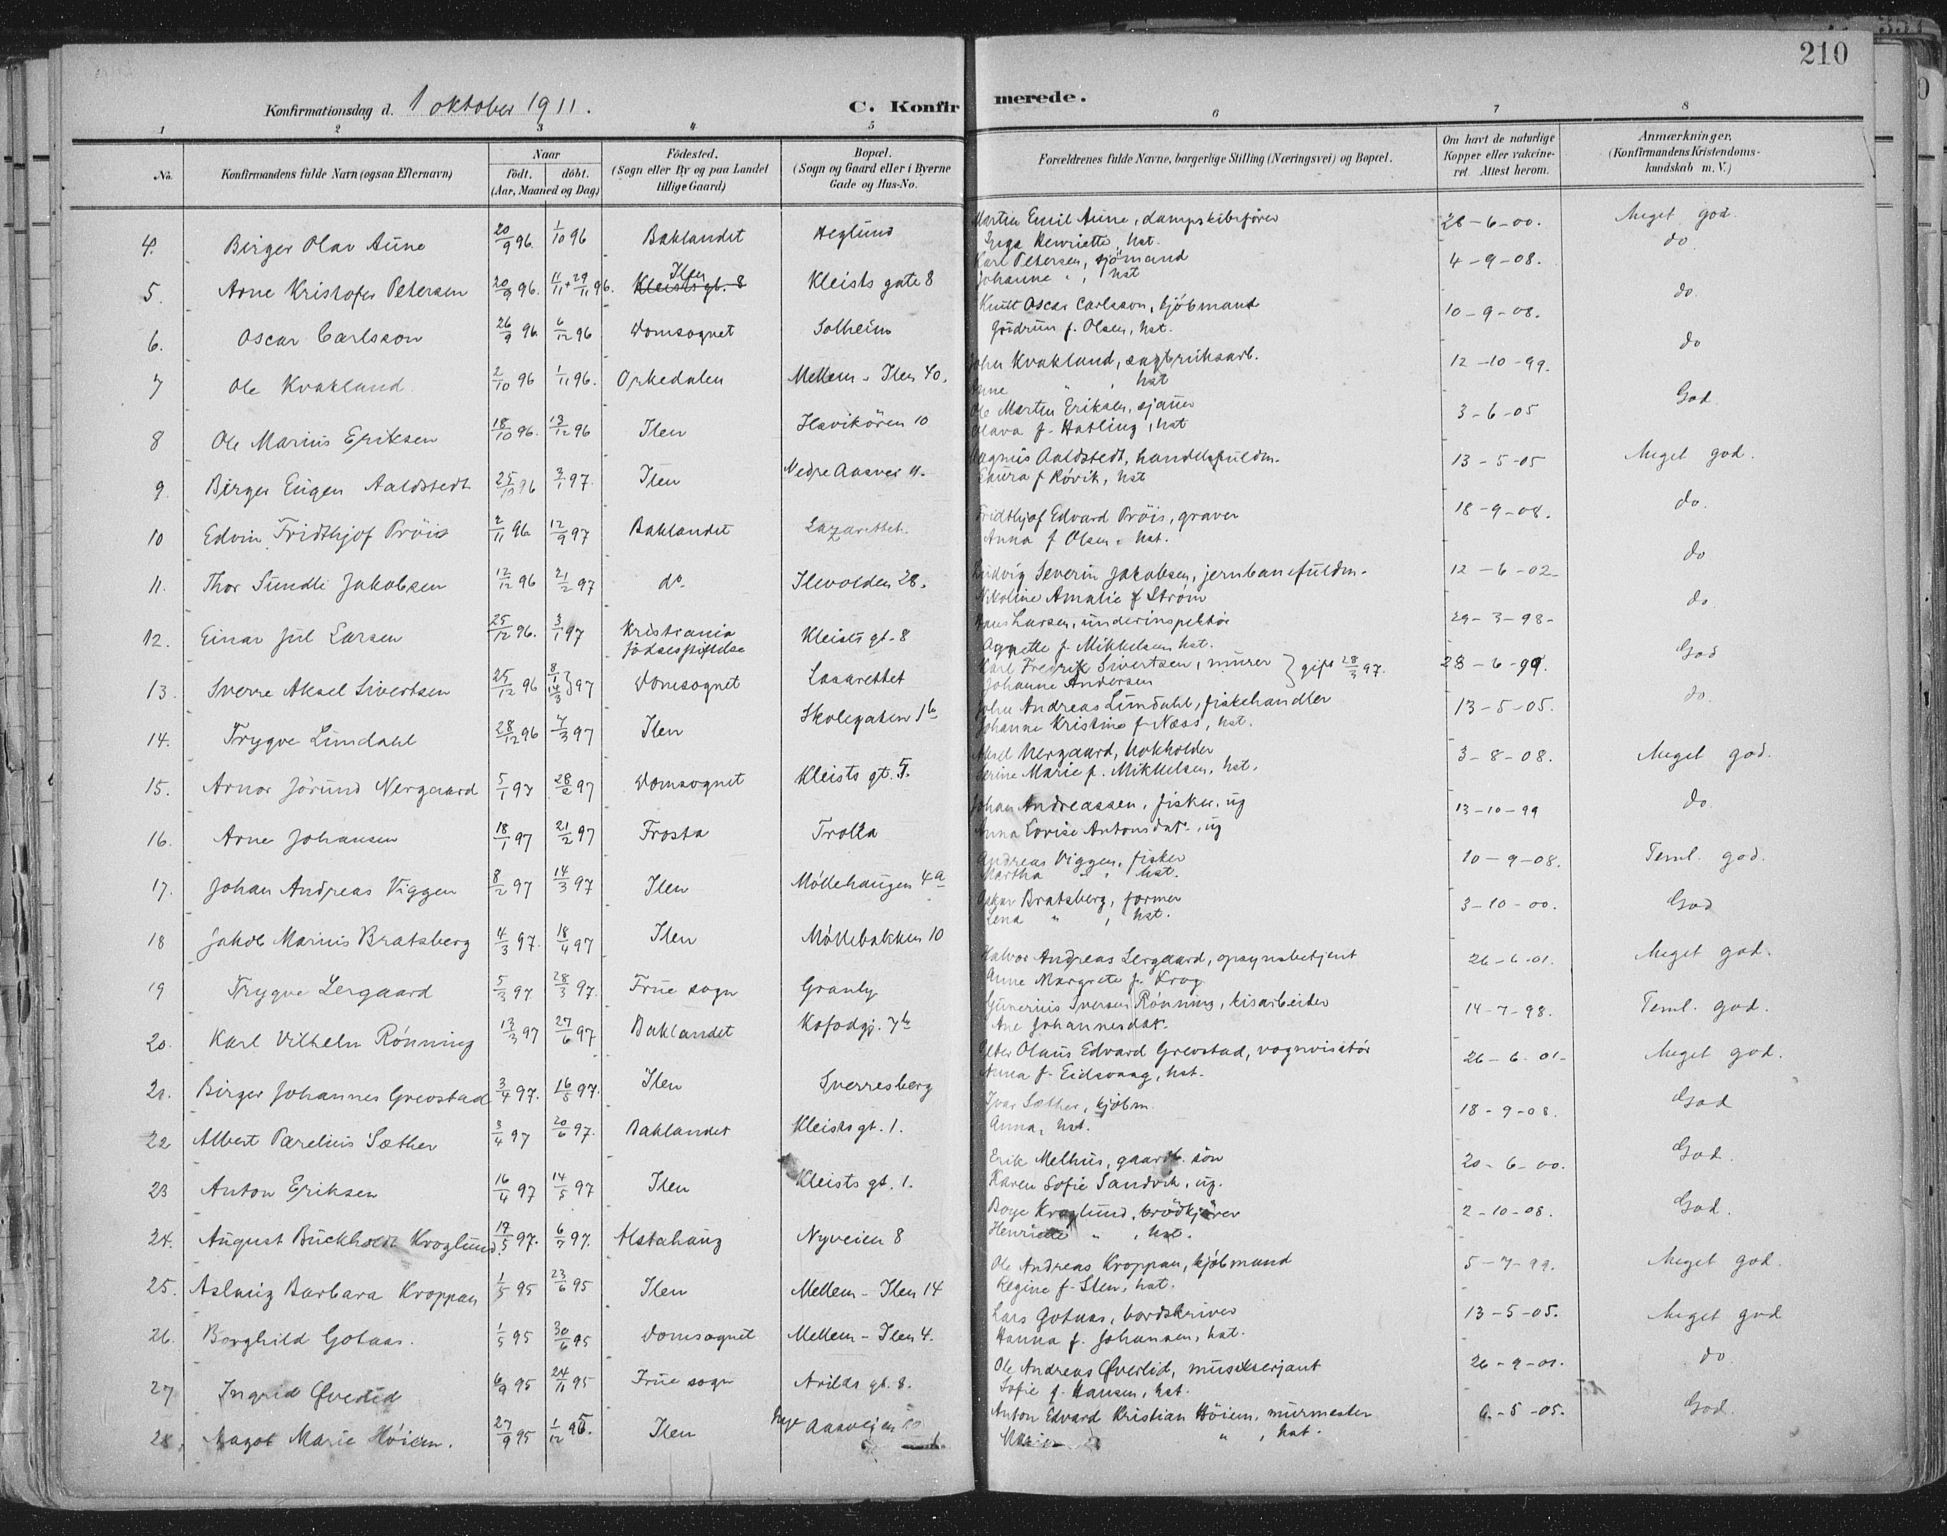 210
Konfirmationsdag d. 1 oktober 1911.
C. Konfirmerede.
1 2 3 4 5 6 7 8
No. Konfirmandens fulde Navn (ogsaa Efternavn) Naar födt. döbt. (Aar, Maaned og Dag) Födested. (Sogn eller By og paa Landet tillige Gaard) Bopæl. (Sogn og Gaard eller i Byerne Gade og Hus-No. Forældrenes fulde Navne, borgerlige Stilling (Næringsvei) og Bopæl. Om havt de naturlige Kopper eller vakcineret. Attest herom. Anmærkninger. (Konfirmandens Kristendomskundskab m. V.)
4. Birger Olav Aune 20/9 96. 1/10 96 Baklandet Heglund Martin Emil Aune, dampskibsfører 28-6-00. Meget god.
Inga Henriette, hst.
5. Arne Kristofer Petersen 20/9 96. 11/11 + 29/11 96. Ilen Kleists gt. 8 Kleists gate 8 Karl Petersen, sjömand 4-9-08. do
Johanne " , hst
6. Oscar Carlsson 26/9 96 6/12 96 Domsognet Solheim Knut Oscar Carlsson, kjöbmand 10-9-08. do.
Gudrun f. Olsen, hst.
7 Ole Kvakland 2/10 96 1/11 96. Orkedalen Mellem-Ilen 40. John Kvakland, sagbruksarb. 12-10-99. do
" , hst
8 Ole Marius Eriksen 18/10 96. 13/12 96 Ilen Ilsvikören 10 Ole Martin Eriksen, sjauer 3-6-05 God.
Olava f. Hatling, hst
9. Birger Eugen Aaldstedt 25/10 96 3/1 97. Ilen Nedre Aasvei 4. Magnus Aaldstedt, handelsfuldm. 13-5-05 Meget god.
Laura f Rövik, hst
10 Edvin Fridthjof Pröis 2/11 96 12/9 97 Baklandet Lazarettet. Fridthjof Edvard Pröis, graver 18-9-08. do.
Anna f Olsen, hst.
11. Thor Sundli Jakobsen 12/12 96 21/2 97 do. Ilevolden 28. Ludvig Severin Jakobsen, jernbanefuldm. 12-6-02 do
Nikoline Amalie f Ström
12. Einar Jul Larsen 25/12 96. 3/1 97 Kristiania födselsstiftelse Kleists gt. 8 Hans Larsen, underinspektör 29-3-98 do
Agnette f. Mikkelsen hst.
13. Sverre Aksel Sivertsen 25/12 96 8/1 14/3 } 97 Domsognet Lasarettet Karl Fredrik Sivertsen, murer } gift 28/3 97. 28-6-99. God
Johanne Andersen
14. Trygve Lundahl 28/12 96 7/3 97 Ilen Skolegaten 1b John Andreas Lundahl, fiskehandler 13-5-05. do.
Johanne Kristine f Næss, hst.
15. Arnor Jörund Nergaard 5/1 97 28/2 97 Domsognet Kleists gt. 5. Aksel Nergaard, bokholder 3-8-08. Meget god.
Serine Marie f. Mikkelsen, hst.
16. Arne Johansen 18/1 97 21/2 97 Frosta Trolla Johan Andreassen, fisker, ug 13-10-99 do.
Anna Lovise Antonsdat., ug
17. Johan Andreas Viggen 8/2 97 14/3 97 Ilen Möllehaugen 4a Andreas Viggen, fisker 10-9-08. Teml. god.
Martha " , hst.
18 Jakob Marius Bratsberg 4/3 97. 18/4 97 Ilen Möllebakken 10 Oskar Bratsberg, former 3-10-00. God
Lena " , hst.
19 Trygve Lergaard 5/3 97 28/3 97. Frue sogn Granly Halvor Andreas Lergaard, opsynsbetjent 26-6-01. Meget god.
Anne Margrete f. Krog
20. Karl Vilhelm Rönning 13/3 97 27/6 97 Baklandet Kofodgj. 7b Gunerius Iversen Rönning, kisarbeider 14-7-98. Teml. god.
Ane Johannesdat.
21. Birger Johannes Grevstad 3/4 97. 16/5 97. Ilen Sverresberg Peter Olaus Edvard Grevstad, vognvisitör 26-6-01. Meget god.
Anna f. Eidsvaag, hst.
22 Albert Parelius Sæther 3/4 97 20/6 97. Baklandet Kleists gt. 1. Ivar Sæther, kjöbm. 18-9-08. God
Anna, hst.
23 Anton Eriksen 16/4 97 14/5 97 Ilen Kleists gt. 1. Erik Melhus, gaardb. sön 20-6-00. God.
Karen Sofie Sandvik, ug.
24. August Buckholdt Kroglund 17/5 97. 6/7 97. Alstahaug Nyveien 8 Boye Kroglund, brödkjörer 2-10-08. God.
Henriette " , hst.
25. Aslaug Barbara Kroppan 1/5 95 23/6 95 Ilen Mellem-Ilen 14 Ole Andreas Kroppan, kjöbmand 5-7-99. Meget god.
Regine f. Sten, hst.
26. Borghild Gotaas. 1/5 95 30/6 95 Domsognet Mellem-Ilen 4. Lars Gotaas, bordskriver 13-5-05. Meget god
Hanna f. Johansen, hst.
27 Ingrid Överlid 6/9 95 24/11 95 Frue sogn Arilds gt. 8. Ole Andreas Överlid, musikserjant 26-9-01. do
Sofie f. Hansen, hst.
28. Aagot Marie Höiem. 27/9 95 1/12 95. Ilen Aasveien 10 Anton Edvard Kristian Höiem, murmester 6-5-05. God.
" , hst.